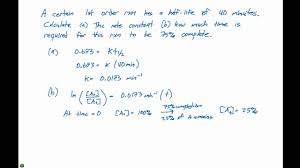 A certain 1st order rxn has a half-life of 40 minutes.
Calculate (a) The rate constant (b) how much time is
required for this rxn to be 75% complete.
(a) 0.693 = K t½
0.693 = K (40 min)
K = 0.0173 min⁻¹
(b) ln ([A₀]/[Aₜ]) = 0.0173 min⁻¹ (t)
At time = 0 [A₀] = 100% 75% completion → 25% of A remains [Aₜ] = 25%